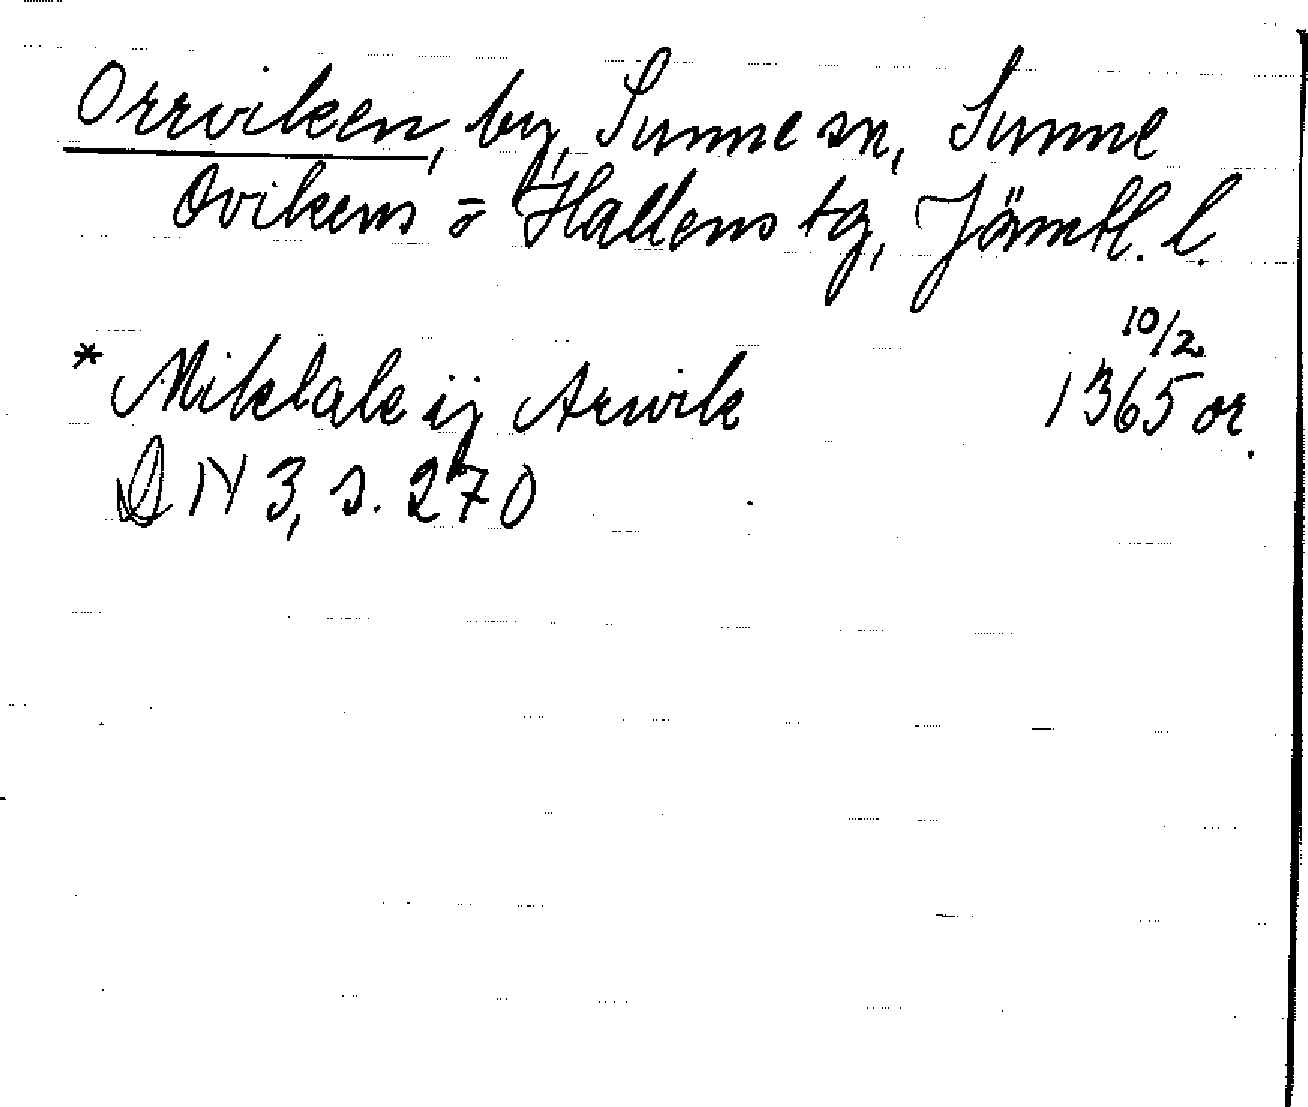 Orrviken, by, Sunne sn, Sunne
Ovikens o Hallens tg, Jämtl. l.
10/2
* Miklale ij Arwik 1365 or.
DN 3, s. 270